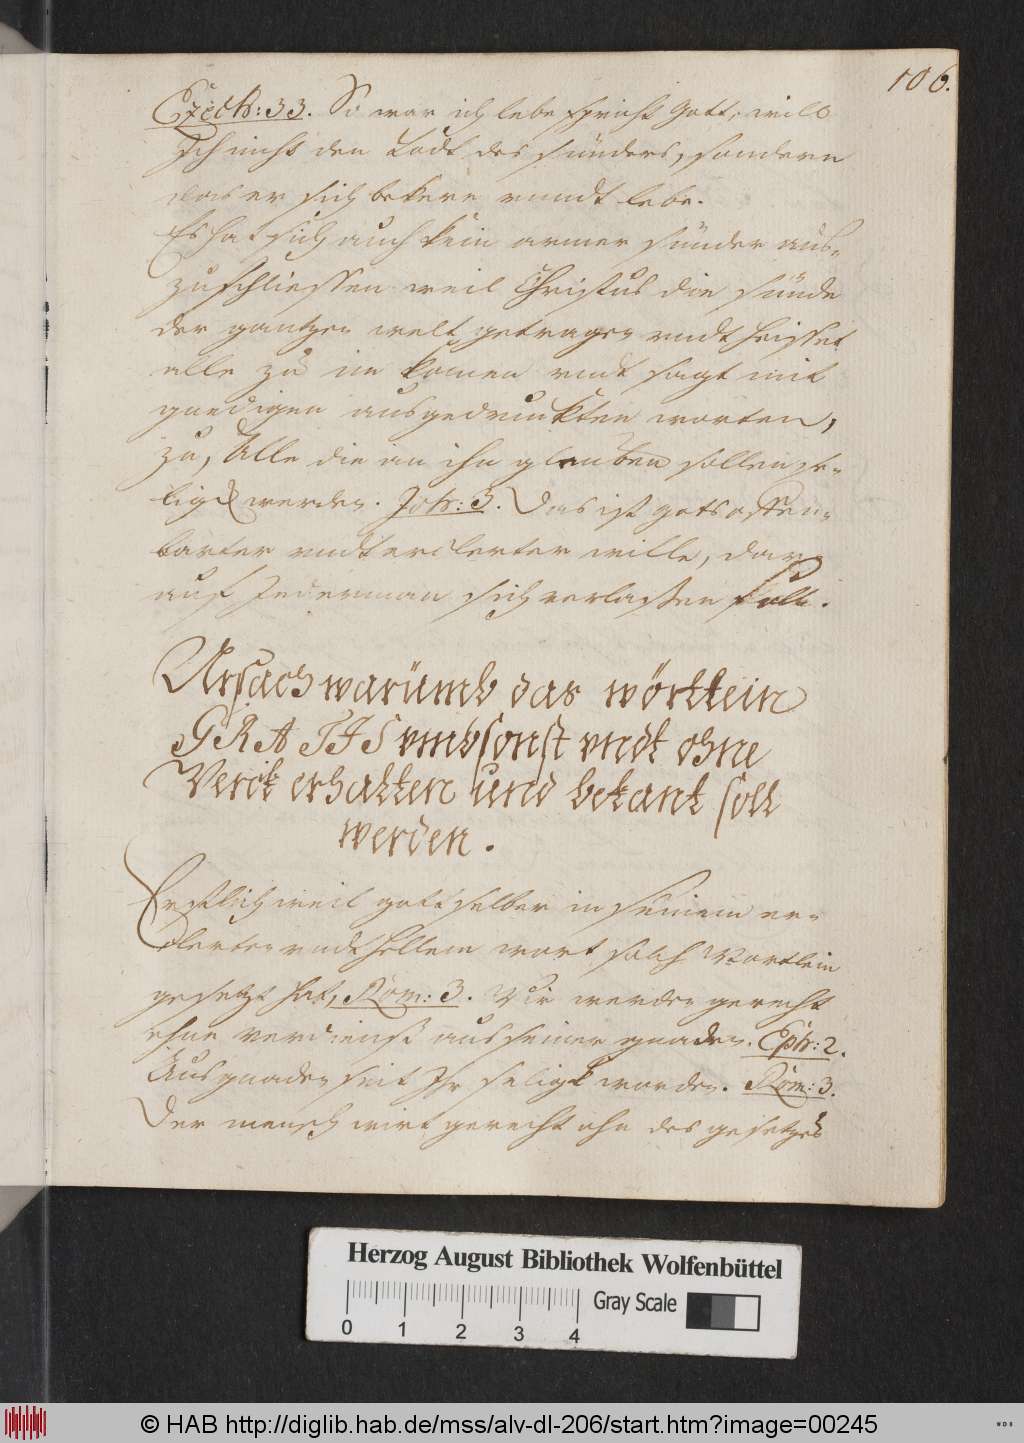 106.
Ezech: 33. So war ich lebe spricht Gott, will
Ich nicht den Todt des sünders, sondern
das er sich bekere vnndt lebe.
Es hat sich auch kein armer sünder aus-
zuschliessen weil Christus die sünde
der gantzen welt getragen vndt heisset
alle zu im komen vndt sagt mit
gnedigen ausgedruckten worten,
zu, Alle die an ihn glauben sollen se-
lig werden. Joh: 3. Das ist gots offen-
barter vndt erclerter wille, dar-
auf Jederman sich verlassen soll.
Ursach warümb das wörtlein
GRATIS vmbsonst vndt ohne
Verdienst erhalten und bekant soll
werden.
Erstlich weil gott selber in seinem er-
clerten vndt hellem wort solch Wortlein
gesetzt hat, Röm: 3. Wir werden gerecht
ohne verdienst aus seiner gnaden. Eph: 2.
Aus gnaden seit Ihr selig worden. Röm: 3.
Der mensch wirt gerecht ohn des gesetzes
Herzog August Bibliothek Wolfenbüttel
Gray Scale
0 1 2 3 4
© HAB http://diglib.hab.de/mss/alv-dl-206/start.htm?image=00245